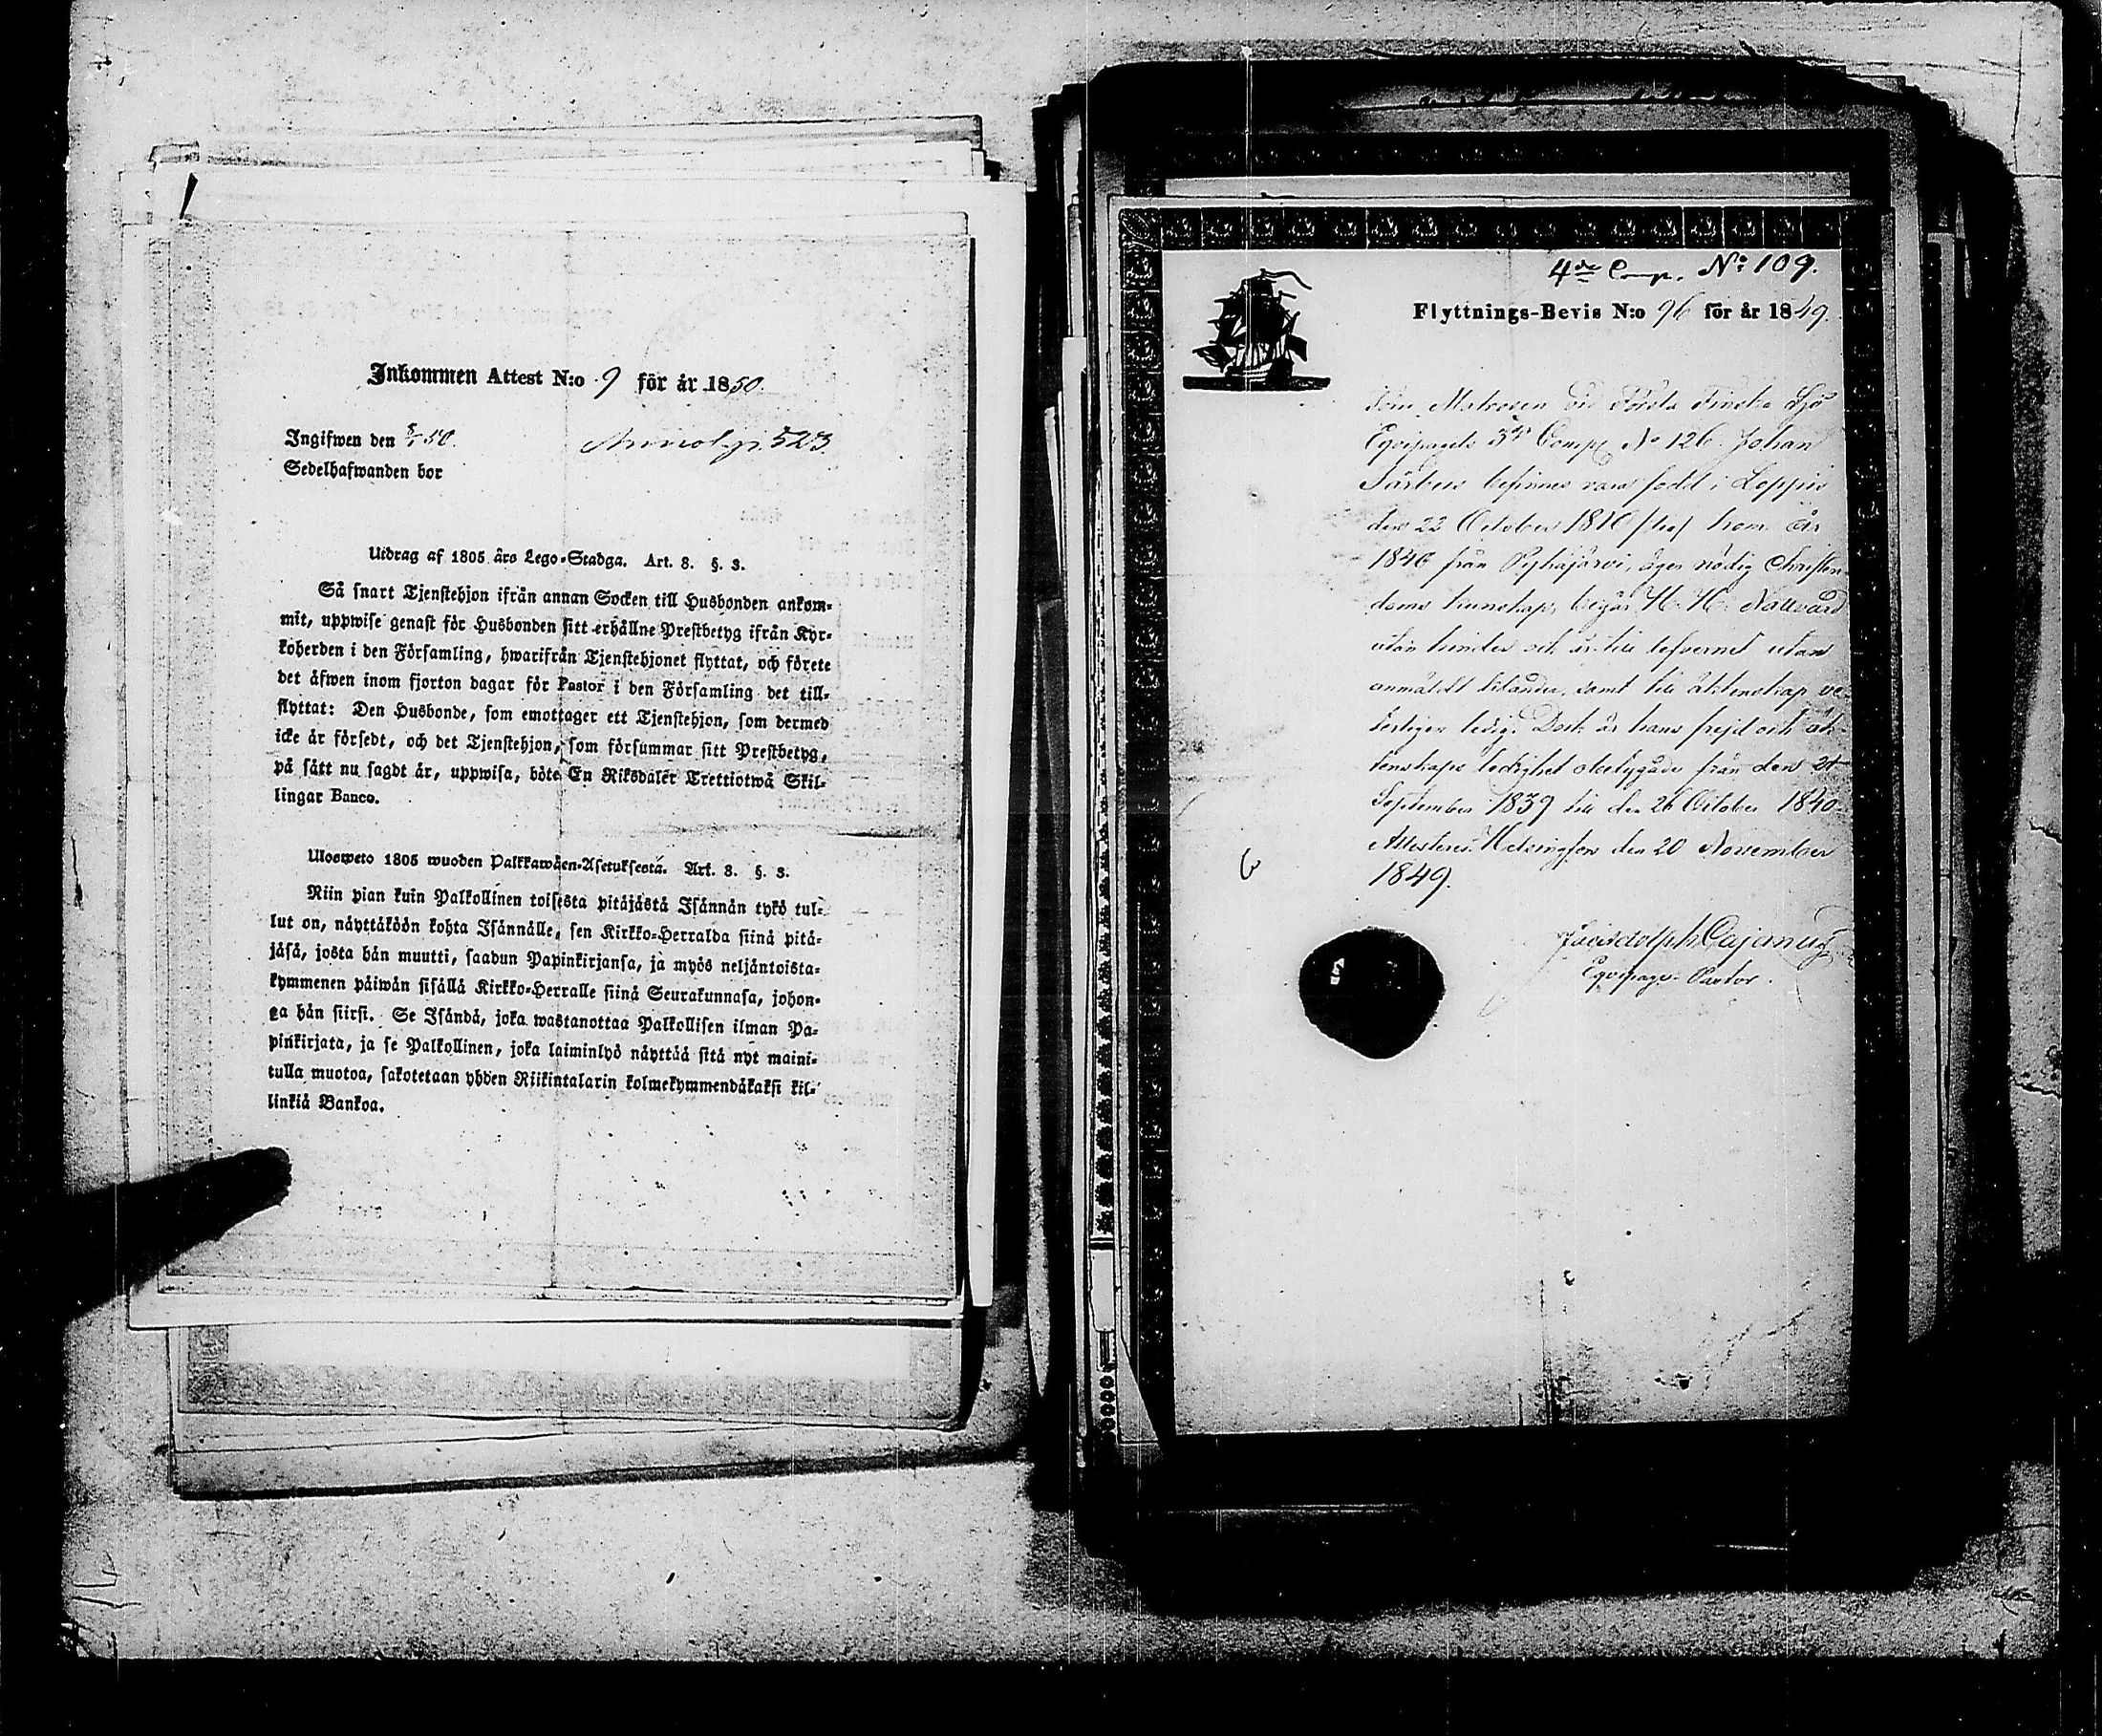 Inkommen Attest N:o 9 för år 1850.
Ingifwen den 8/1 50.
523
Sedelhafwanden bor
Utdrag af 1805 års Lego-Stadga. Art. 8. §. 3.
Så snart Tjenstehjon ifrån annan Socken till Husbonden ankom-
mit, uppwise genast för Husbonden sitt erhållne Prestbetyg ifrån Kyr-
koherden i den Församling, hwarifrån Tjenstehjonet flyttat, och förete
det äfwen inom fjorton dagar för Pastor i den Församling det till-
flyttat: Den Husbonde, som emottager ett Tjenstehjon, som dermed
icke är försedt, och det Tjenstehjon, som försummar sitt Prestbetyg,
på sätt nu sagdt är, uppwisa, böte En Riksdaler Trettiotwå Skil-
lingar Banco.
Ulosweto 1805 wuoden Palkkawäen-Asetuksesta. Art. 8. §. 3.
Niin pian kuin Palkollinen toisesta pitäjästä Isännän tykö tul-
lut on, näyttäköön kohta Isännälle, sen Kirkko-Herralda siinä pitä-
jäsä, josta hän muutti, saadun Papinkirjansa, ja myös neljäntoista-
kymmenen päiwän sisällä Kirkko-Herralle siinä Seurakunnasa, johon-
ga hän siirsi. Se Isändä, joka wastanottaa Palkollisen ilman Pa-
pinkirjata, ja se Palkollinen, joka laiminlyö näyttää sitä nyt maini-
tulla muotoa, sakotetaan yhden Riikintalarin kolmekymmendäkaksi kil-
linkiä Bankoa.
4de Comp. No 109.
Flyttnings-Bevis N:o 96 för år 1849.
Som Matrosen vid Första Finska Sjö
Eqvipagets 3dje Comp. No 126 Johan
befinnes vara född i Loppis
den 22 October 1816 kom år
1840 från Pyhäjärvi, äger nödig Christen-
doms kunskap, begår H. H. Nattvard
utan hinder och är till lefvernet utan
anmäldt samt till äktenskap ve-
terligen ledig. Dock är hans frejd och äk-
tenskaps ledighet obetygade från den 21
September 1839 till den 26 October 1840.
Attesteras Helsingfors den 20 November
1849.
Cajanus
Eqvipage-Pastor.